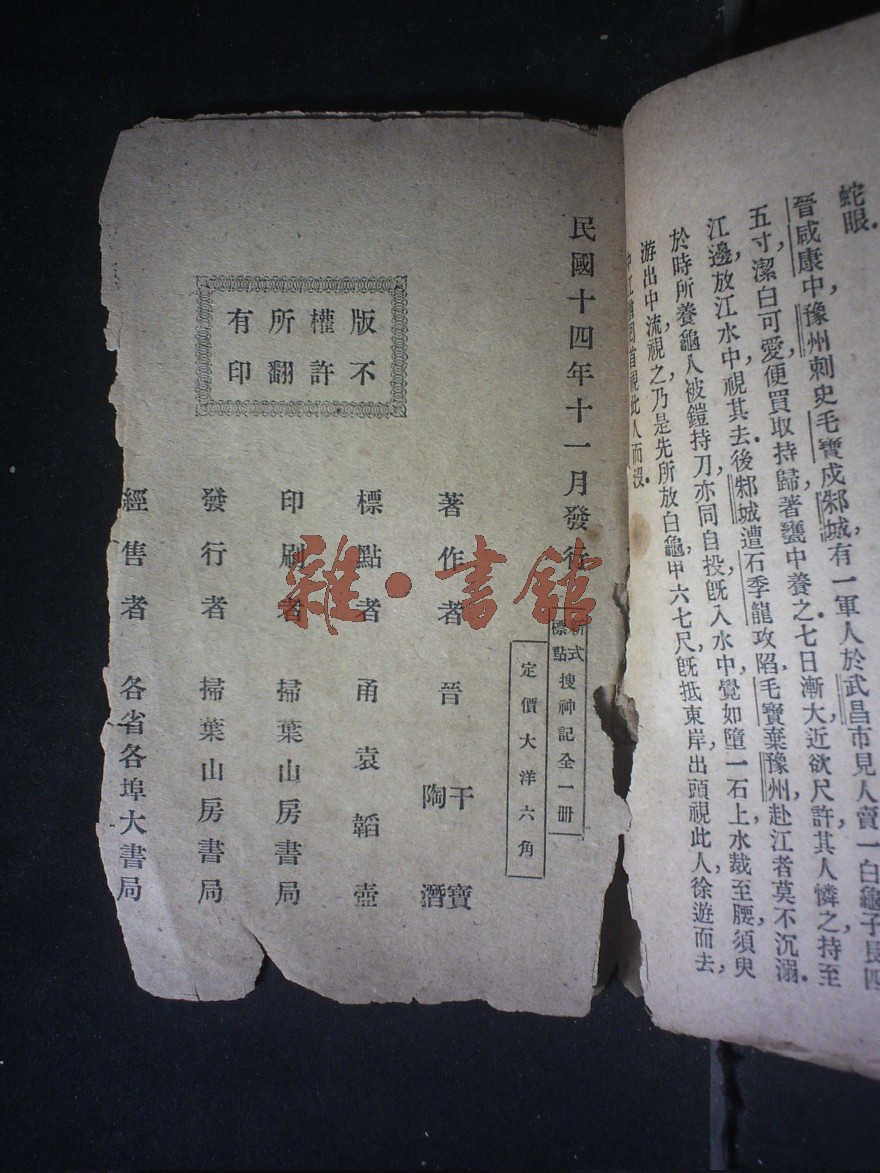 蛇眼．
晉咸康中，豫州刺史毛寶戍邾城，有一軍人於武昌市見人賣一白龜子長四
五寸潔白可愛便買取持歸著甕中養之七日漸大近欲尺許其人憐之持至
江邊放江水中視其去．後邾城遭石季龍攻陷，毛寶棄豫州，赴江者莫不沉溺．
於時所養龜人被鎧持刀亦同自投旣入水中覺如墮一石上水裁至腰須臾
游出中流視之乃是先所放白龜甲六七尺旣抵東岸出頭視此人徐遊而去，
首視此人而沒．
民國十四年十一月發行
新式標點搜神記全一册
定價大洋六角
著作者 晉 干寶 陶潛
標點者 甬袁韜壺
印刷者 掃葉山房書局
發行者 掃葉山房書局
經售者 各省各埠大書局
版權所有
不許翻印
雜·書館